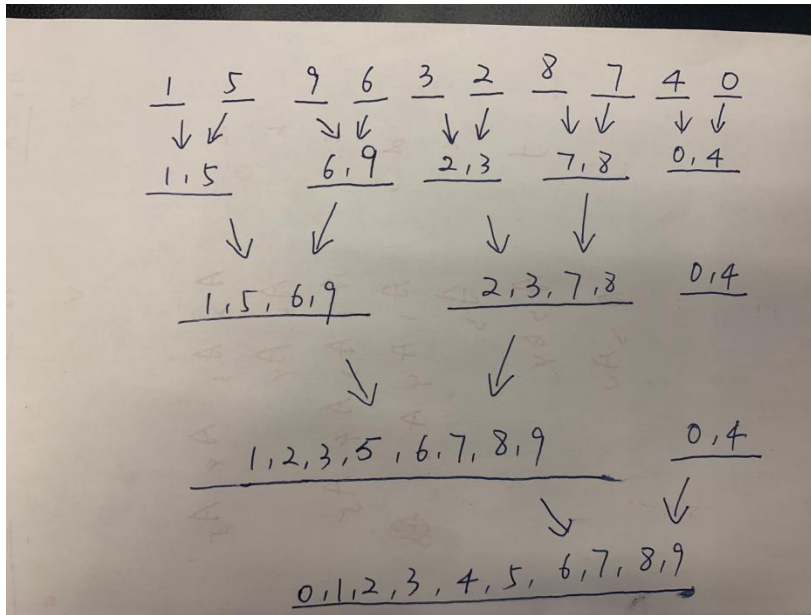 1 5 9 6 3 2 8 7 4 0
1,5 6,9 2,3 7,8 0,4
1,5,6,9 2,3,7,8 0,4
1,2,3,5,6,7,8,9 0,4
0,1,2,3,4,5,6,7,8,9